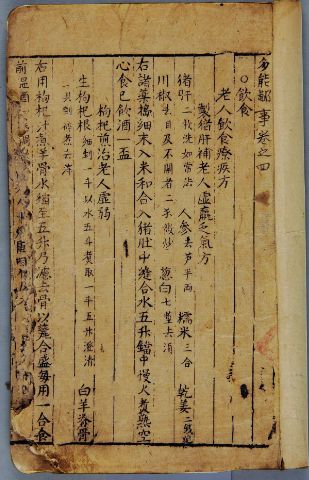 多能鄙事卷之四
○飲食
老人飲食療疾方
製猪肝補老人虛羸乏氣方
猪肝一具洗如常法 人參去芦半両 糯米三合 乾姜
川椒去目及不開者二 炒 蔥白七莖去須
右諸藥搗細末入米和合入猪肚中縫合水五升鐺中慢火煮熟空
心食已飲酒一盃
枸杞煎治老人虛弱
生枸杞根細剉一斗以水五斗煑取一斗五升澄清 白羊脊骨
一具剉碎
右用枸杞汁煮羊骨水細至五升乃濾去骨以甆合盛每用一合食
前温酒